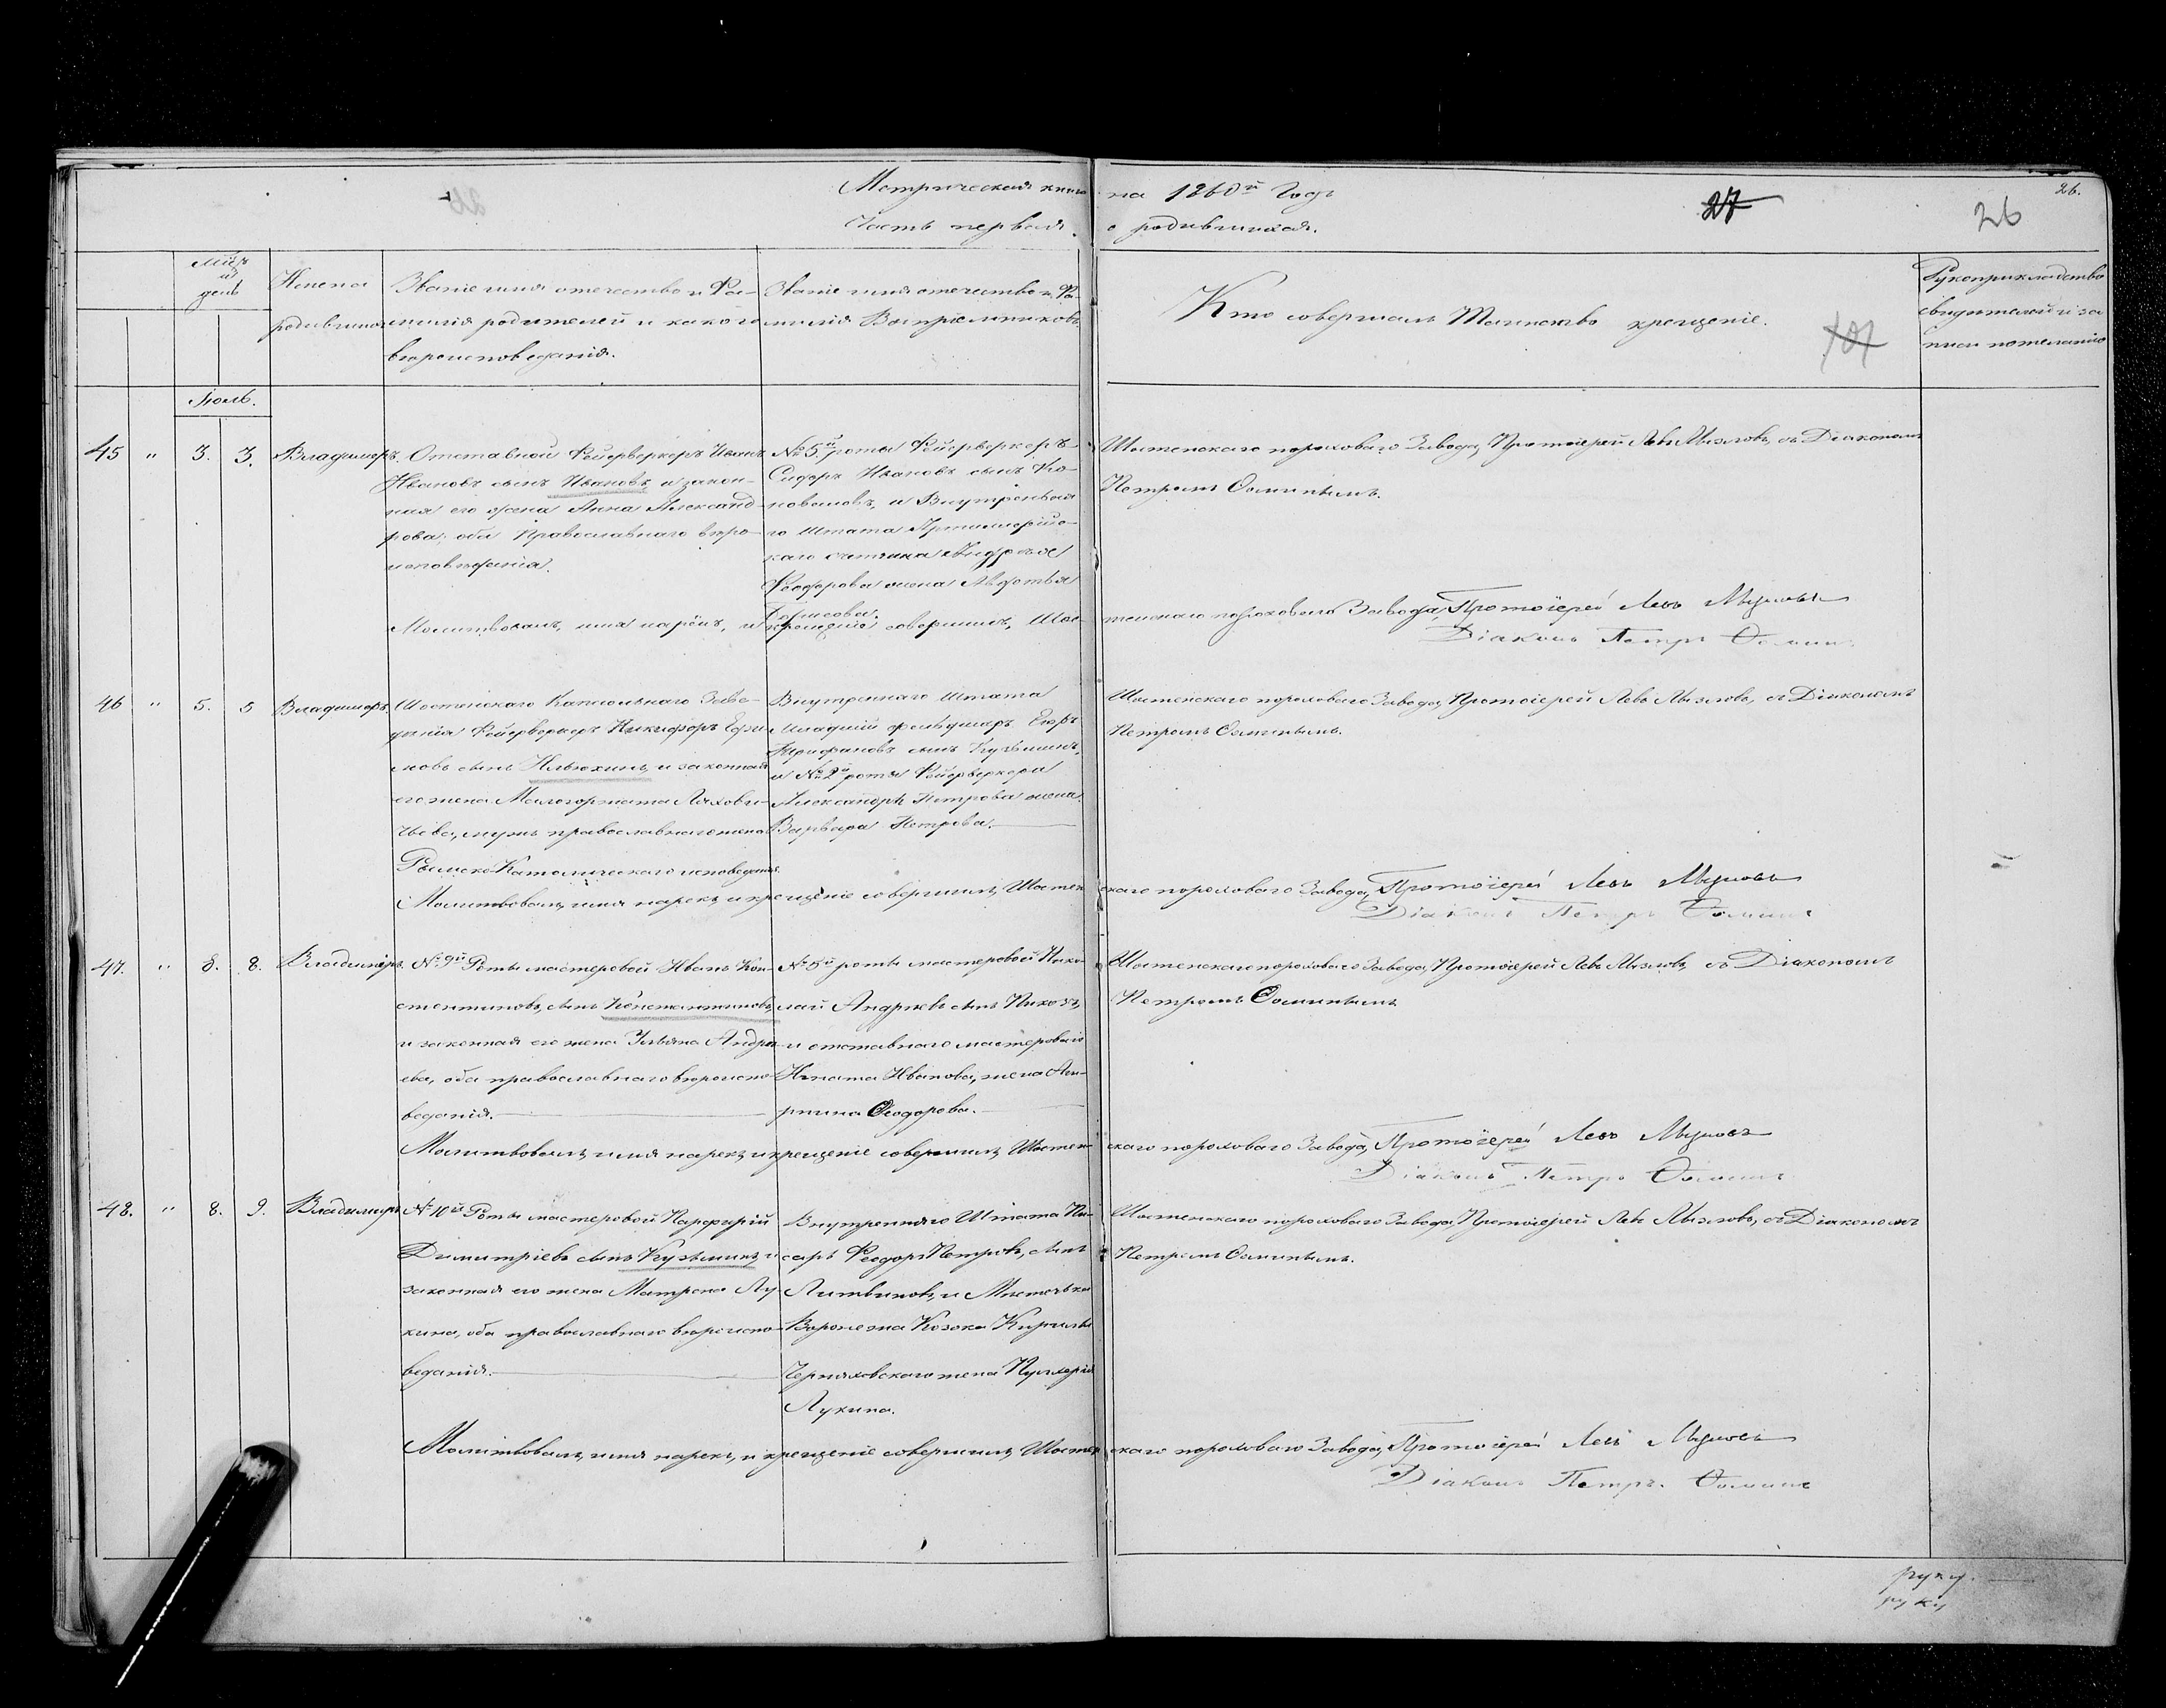 Метрическая книга на 1860й Годъ
Часть первая о родившихся.
27
26
26.
Мцъ и день
Имена родившихся
Званіе имя отечество и Фамилія родителей и какого вѣроисповеданія.
Званіе имя отечество и Фамилія Воспріемниковъ
Кто совершалъ Таинство крещеніе.
Рукоприкладство свидетелей записи по желанію
Іюль.
45 " 3. 3. Владимиръ.
Отставной Фейерверкеръ Иванъ
Ивановъ сынъ Ивановъ, и закон-
ная его жена Анна Александ-
рова; оба Православнаго вѣро-
исповѣданія.
№ 5й роты Фейерверкеръ
Сидоръ Ивановъ сынъ Ко-
новаловъ, и Внутренняя
го Штата Артиллерійс-
каго счетчика Андрея
Феодорова жена Авдотья
Борисова.
Шостенскаго пороховаго Завода, Протоіерей Левъ Мызловъ, съ Діакономъ
Петромъ Ѳоминымъ.
Молитвовалъ, имя нарёкъ, и крещеніе совершилъ, Шос-тенскаго пороховаго Завода, Протоіерей Левъ Мызловъ
Діаконъ Петръ Ѳоминъ
46 " 5. 5 Владимиръ.
Шостенскаго Капсюльнаго Заве-
денія Фейерверкеръ Никифоръ Ефи-
мовъ сынъ Илюхинъ, и законная
его жена Малгоржата Ляхови-
чьева, мужъ православнаго жена
Римско-Католическаго исповеданія.
Внутренняго Штата
Младшій фельдшеръ Егоръ
Трифановъ сынъ Кузьминъ,
и № 2й роты Фейерверкера
Александра Петрова жена
Варвара Петрова.
Шостенскаго пороховаго Завода, Протоіерей Левъ Мызловъ, съ Діакономъ
Петромъ Ѳоминымъ.
Молитвовалъ, имя нарекъ, и крещеніе совершилъ, Шостенскаго пороховаго Завода, Протоіерей Левъ Мызловъ
Діаконъ Петръ Ѳоминъ
47. " 8. 8. Владимиръ.
№ 9й Роты мастеровой Иванъ Кон-
стентиновъ, сынъ Константиновъ,
и законная его жена Ульяна Андре-
ева, оба православнаго вѣроиспо-
веданія.
№ 5й роты мастеровой Нико-
лай Андреевъ сынъ
и отставнаго мастероваго
Игната Иванова, жена
Ѳеодорова.
Шостенскаго пороховаго Завода, Протоіерей Левъ Мызловъ, съ Діакономъ
Петромъ Ѳоминымъ
Молитвовалъ, имя нарекъ, и крещеніе совершилъ, Шостенскаго пороховаго Завода, Протоіерей Левъ Мызловъ
Діаконъ Петръ Ѳоминъ
48. " 8. 9. Владимиръ
№ 10й Роты мастеровой Парфирій
Димитріевъ сынъ Кузьминъ, и
законная его жена Матрена Лу-
кина, оба православнаго вѣроиспо-
веданія.
Внутренняго Штата Пи-
сарь Феодоръ Петровъ, сынъ
Литвиновъ, и Местечька
Воронежа Козака Кирилы
Черняховскаго жена Пулхерія
Лукина.
Шостенскаго пороховаго Завода, Протоіерей Левъ Мызловъ, съ Діакономъ
Петромъ Ѳоминымъ.
Молитвовалъ, имя нарекъ, и крещеніе совершилъ, Шостенскаго пороховаго Завода, Протоіерей Левъ Мызловъ
Діаконъ Петръ. Ѳоминъ
руку.
руку